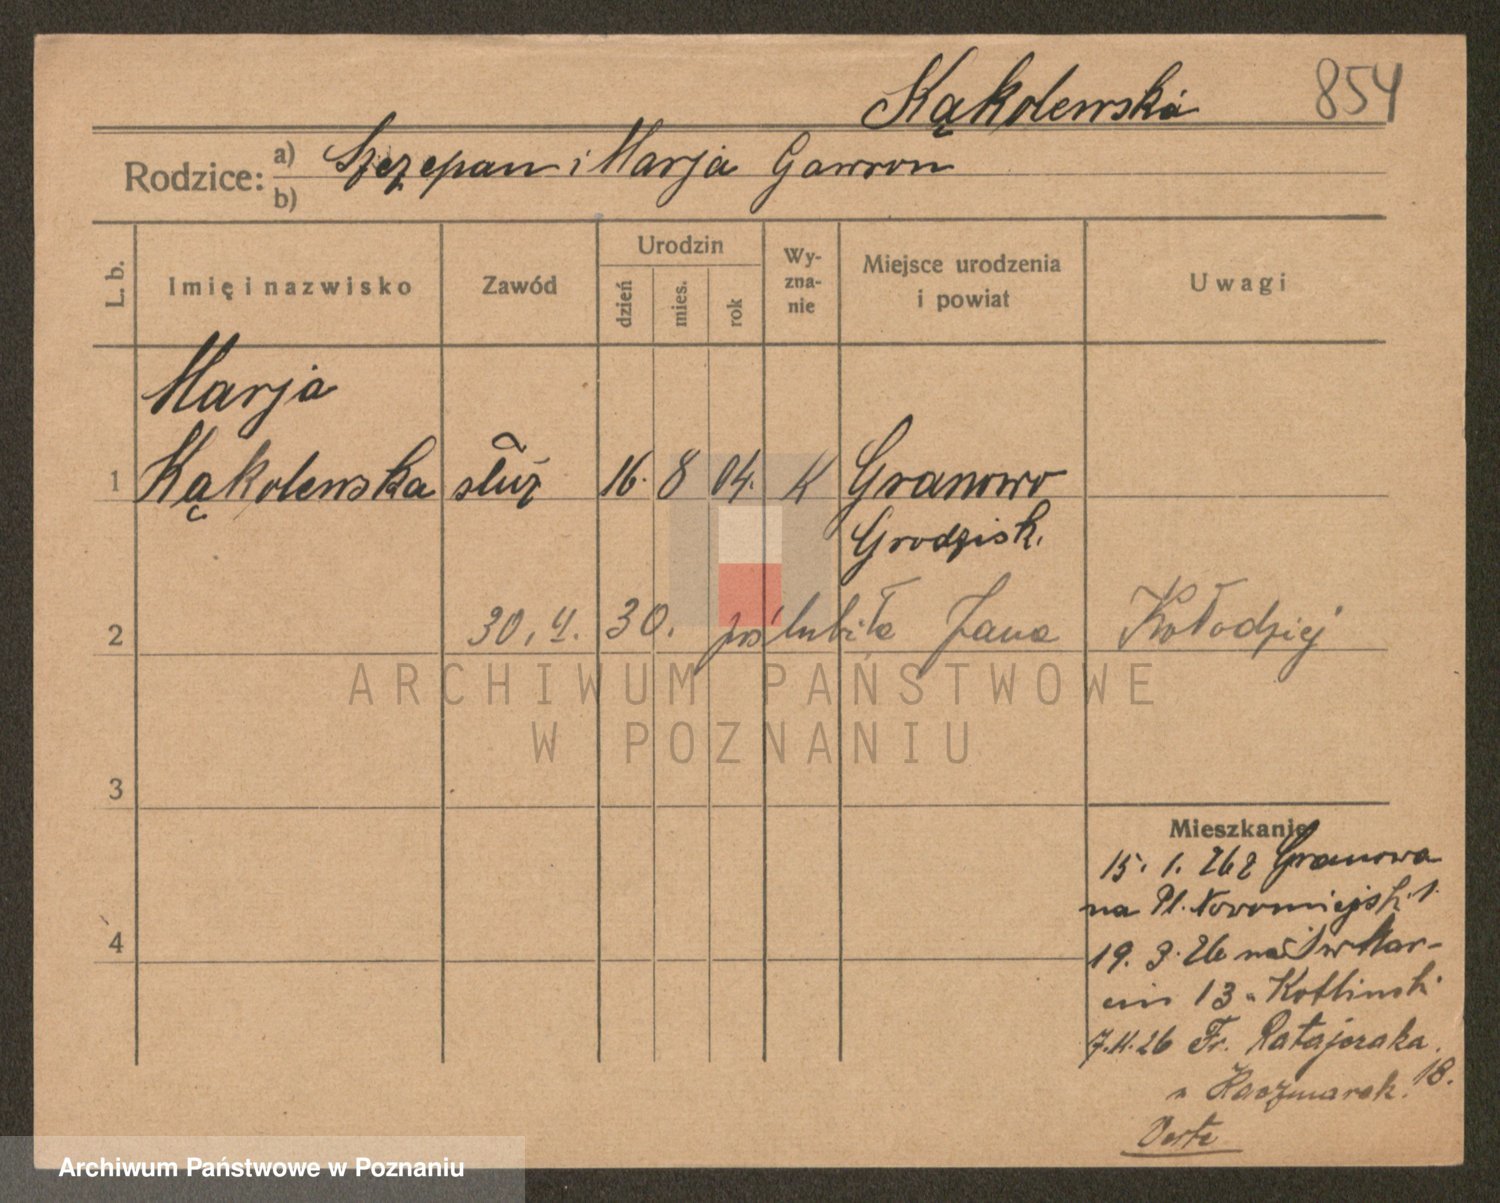 Kąkolewska 854
Rodzice: a) Szczepan i Marja Gawron
b)
L. b. Imię i nazwisko Zawód Urodzin dzień mies. rok Wy-zna-nie Miejsce urodzenia i powiat Uwagi
Marja
1 Kąkolewska służ 16. 8 04. K Granowo
Grodzisk.
2 30. 4. 30. poślubiła Jana Kołodziej
ARCHIWUM PAŃSTWOWE
W POZNANIU
3
Mieszkanie
15. 1. 26 z Granowa
na Pl. Nowomiejsk. 1.
4
19. 3. 26 na Św Mar-
cin 13 u Kotlinski
26 Fr. Ratajczaka 18.
u Kaczmarek.
Verte
Archiwum Państwowe w Poznaniu